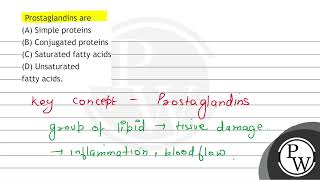 Prostaglandins are
(A) Simple proteins
(B) Conjugated proteins
(C) Saturated fatty acids
(D) Unsaturated
fatty acids.
Key concept - Prostaglandins
group of lipid → tissue damage
→ inflammation, blood flow
P
W